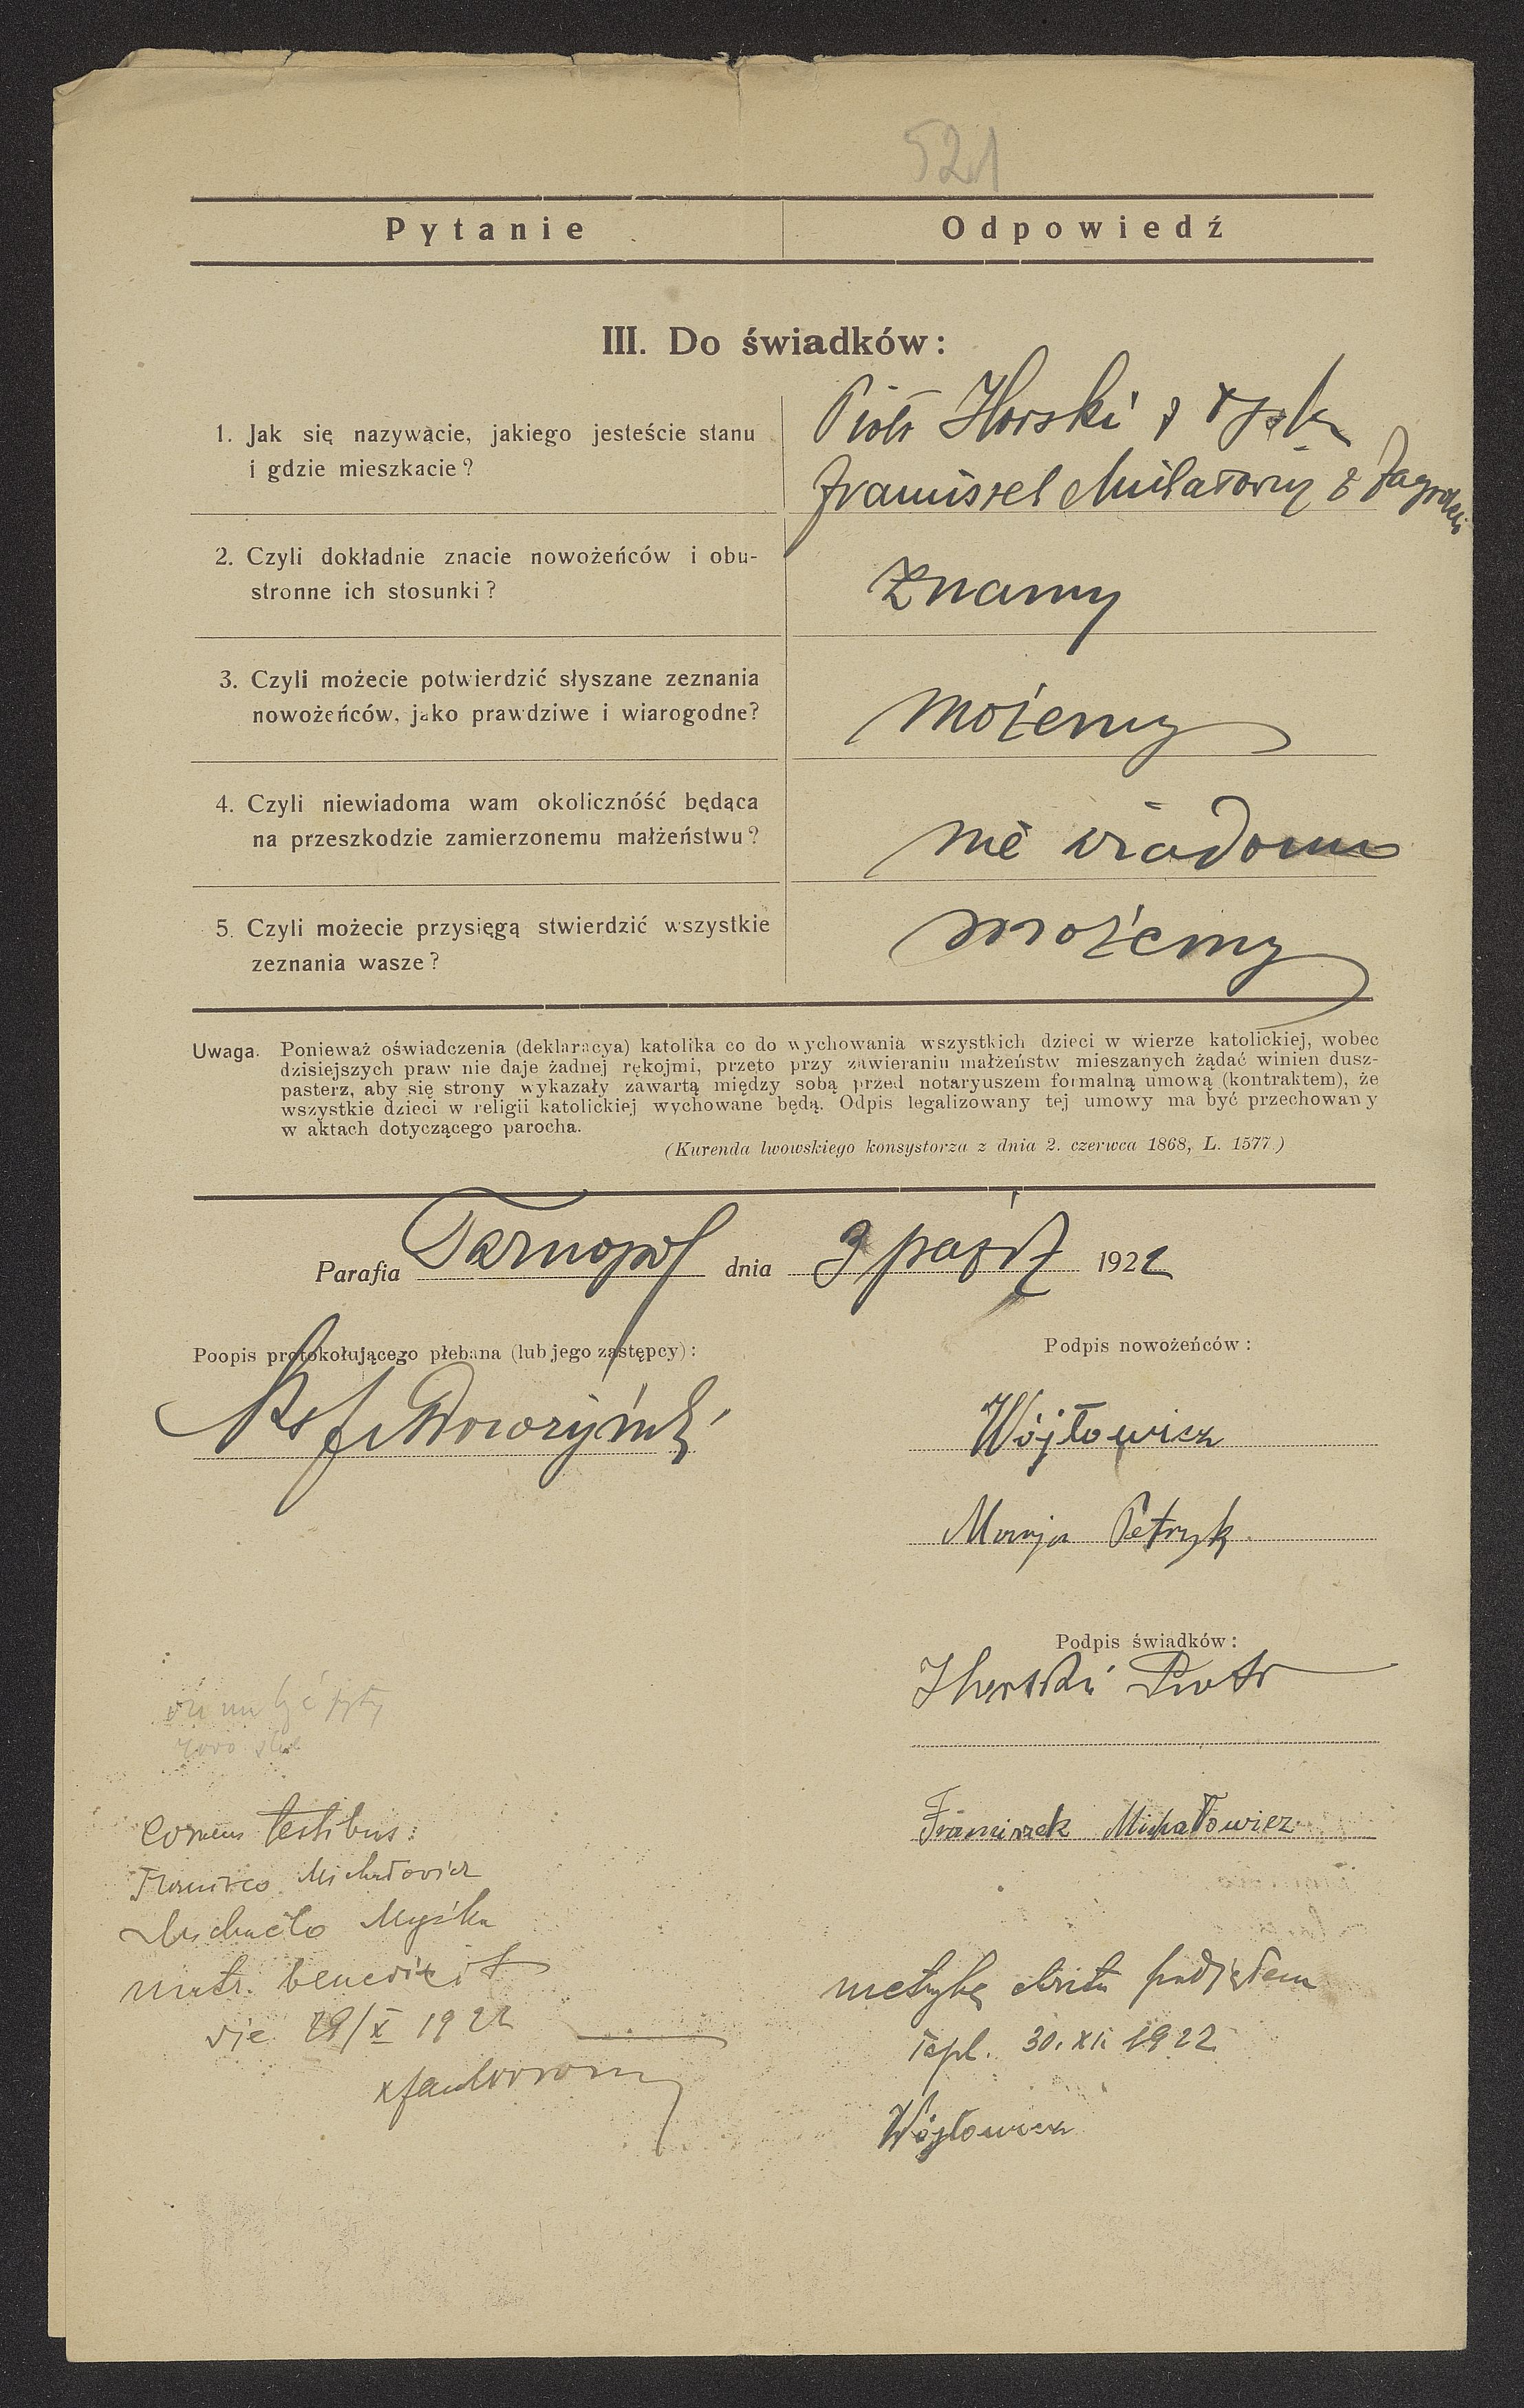 521
Pytanie Odpowiedź
III. Do świadków:
1. Jak się nazywacie, jakiego jesteście stanu
i gdzie mieszkacie?
Piotr Ilerski z
Franciszek Michałowicz z Zagrobeli
2. Czyli dokładnie znacie nowożeńców i obu-
stronne ich stosunki?
znamy
3. Czyli możecie potwierdzić słyszane zeznania
nowożeńców, jako prawdziwe i wiarogodne?
możemy
4. Czyli niewiadoma wam okolicznóść będąca
na przeszkodzie zamierzonemu małżeństwu?
nie wiadoma
5. Czyli możecie przysięgą stwierdzić wszystkie
zeznania wasze?
możemy
Uwaga. Ponieważ oświadczenia (deklaracya) katolika co do wychowania wszystkich dzieci w wierze katolickiej, wobec
dzisiejszych praw nie daje żadnej rękojmi, przeto przy zawieraniu małżeństw mieszanych żądać winien dusz-
pasterz, aby się strony wykazały zawartą między sobą przed notaryuszem formalną umową (kontraktem), że
wszystkie dzieci w religii katolickiej wychowane będą. Odpis legalizowany tej umowy ma być przechowany
w aktach dotyczącego parocha.
(Kurenda lwowskiego konsystorza z dnia 2. czerwca 1868, L. 1577.)
Parafia Tarnopol dnia 9 paźdz 1922
Poopis protokołującego plebana (lub jego zastępcy):
Podpis nowożeńców:
Wójtowicz
Marja Petryk
Podpis świadków:
Piotr
Franciszek Michałowicz
coram testibus:
Francisco Michałowicz
Michaelo Myśka
matr. benedixit
die 29/X 1922
metrykę ślubu podjąłem
Tarpl. 30. XII 1922
Wójtowicz